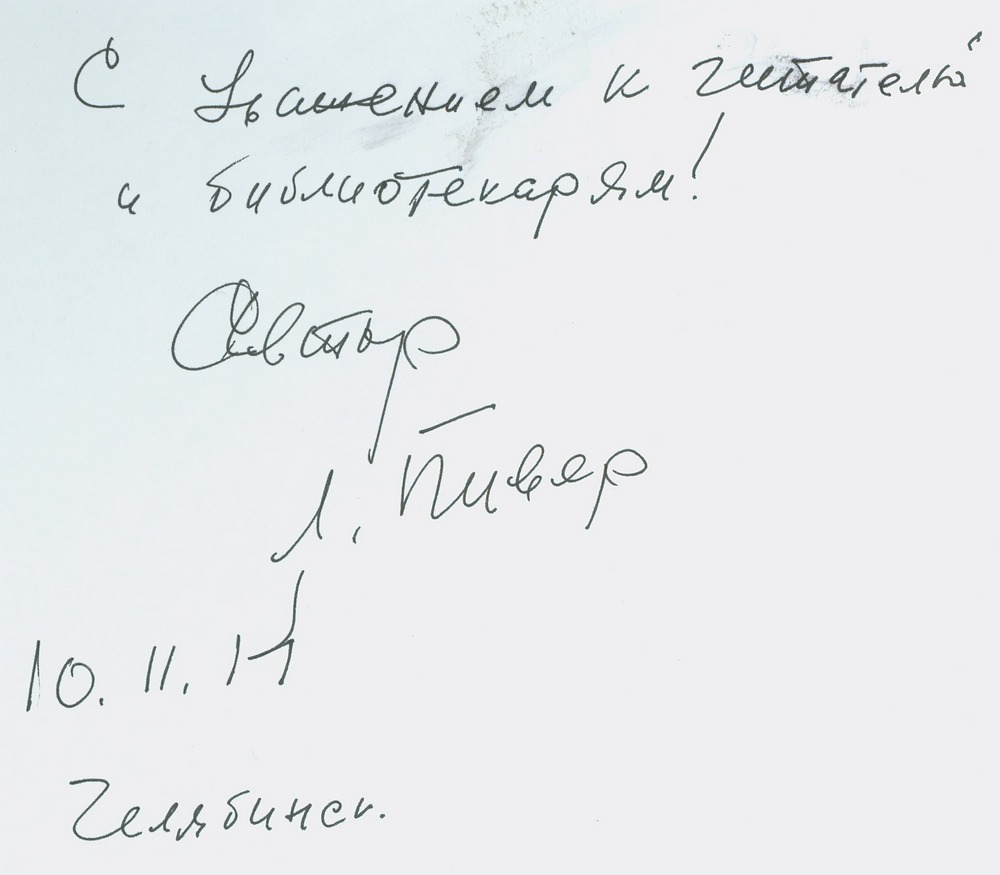 С Уважением к читателю
и библиотекарям!
Автор
Л. Пивер
10.11.14
Челябинск.